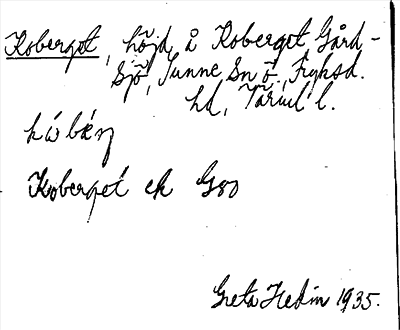 Koberget, höjd å Koberget Gård-
sjö, Sunne Sn ö., Fryksd.
hd, Värml l.
Koberget ek G80
Greta Hedin 1935.